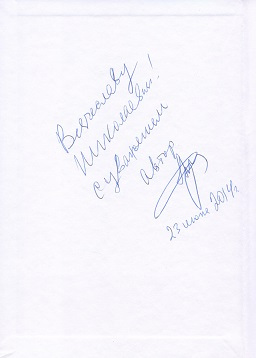 Вячеславу
Николаевичу!
с уважением
автор
23 июня 2014г.